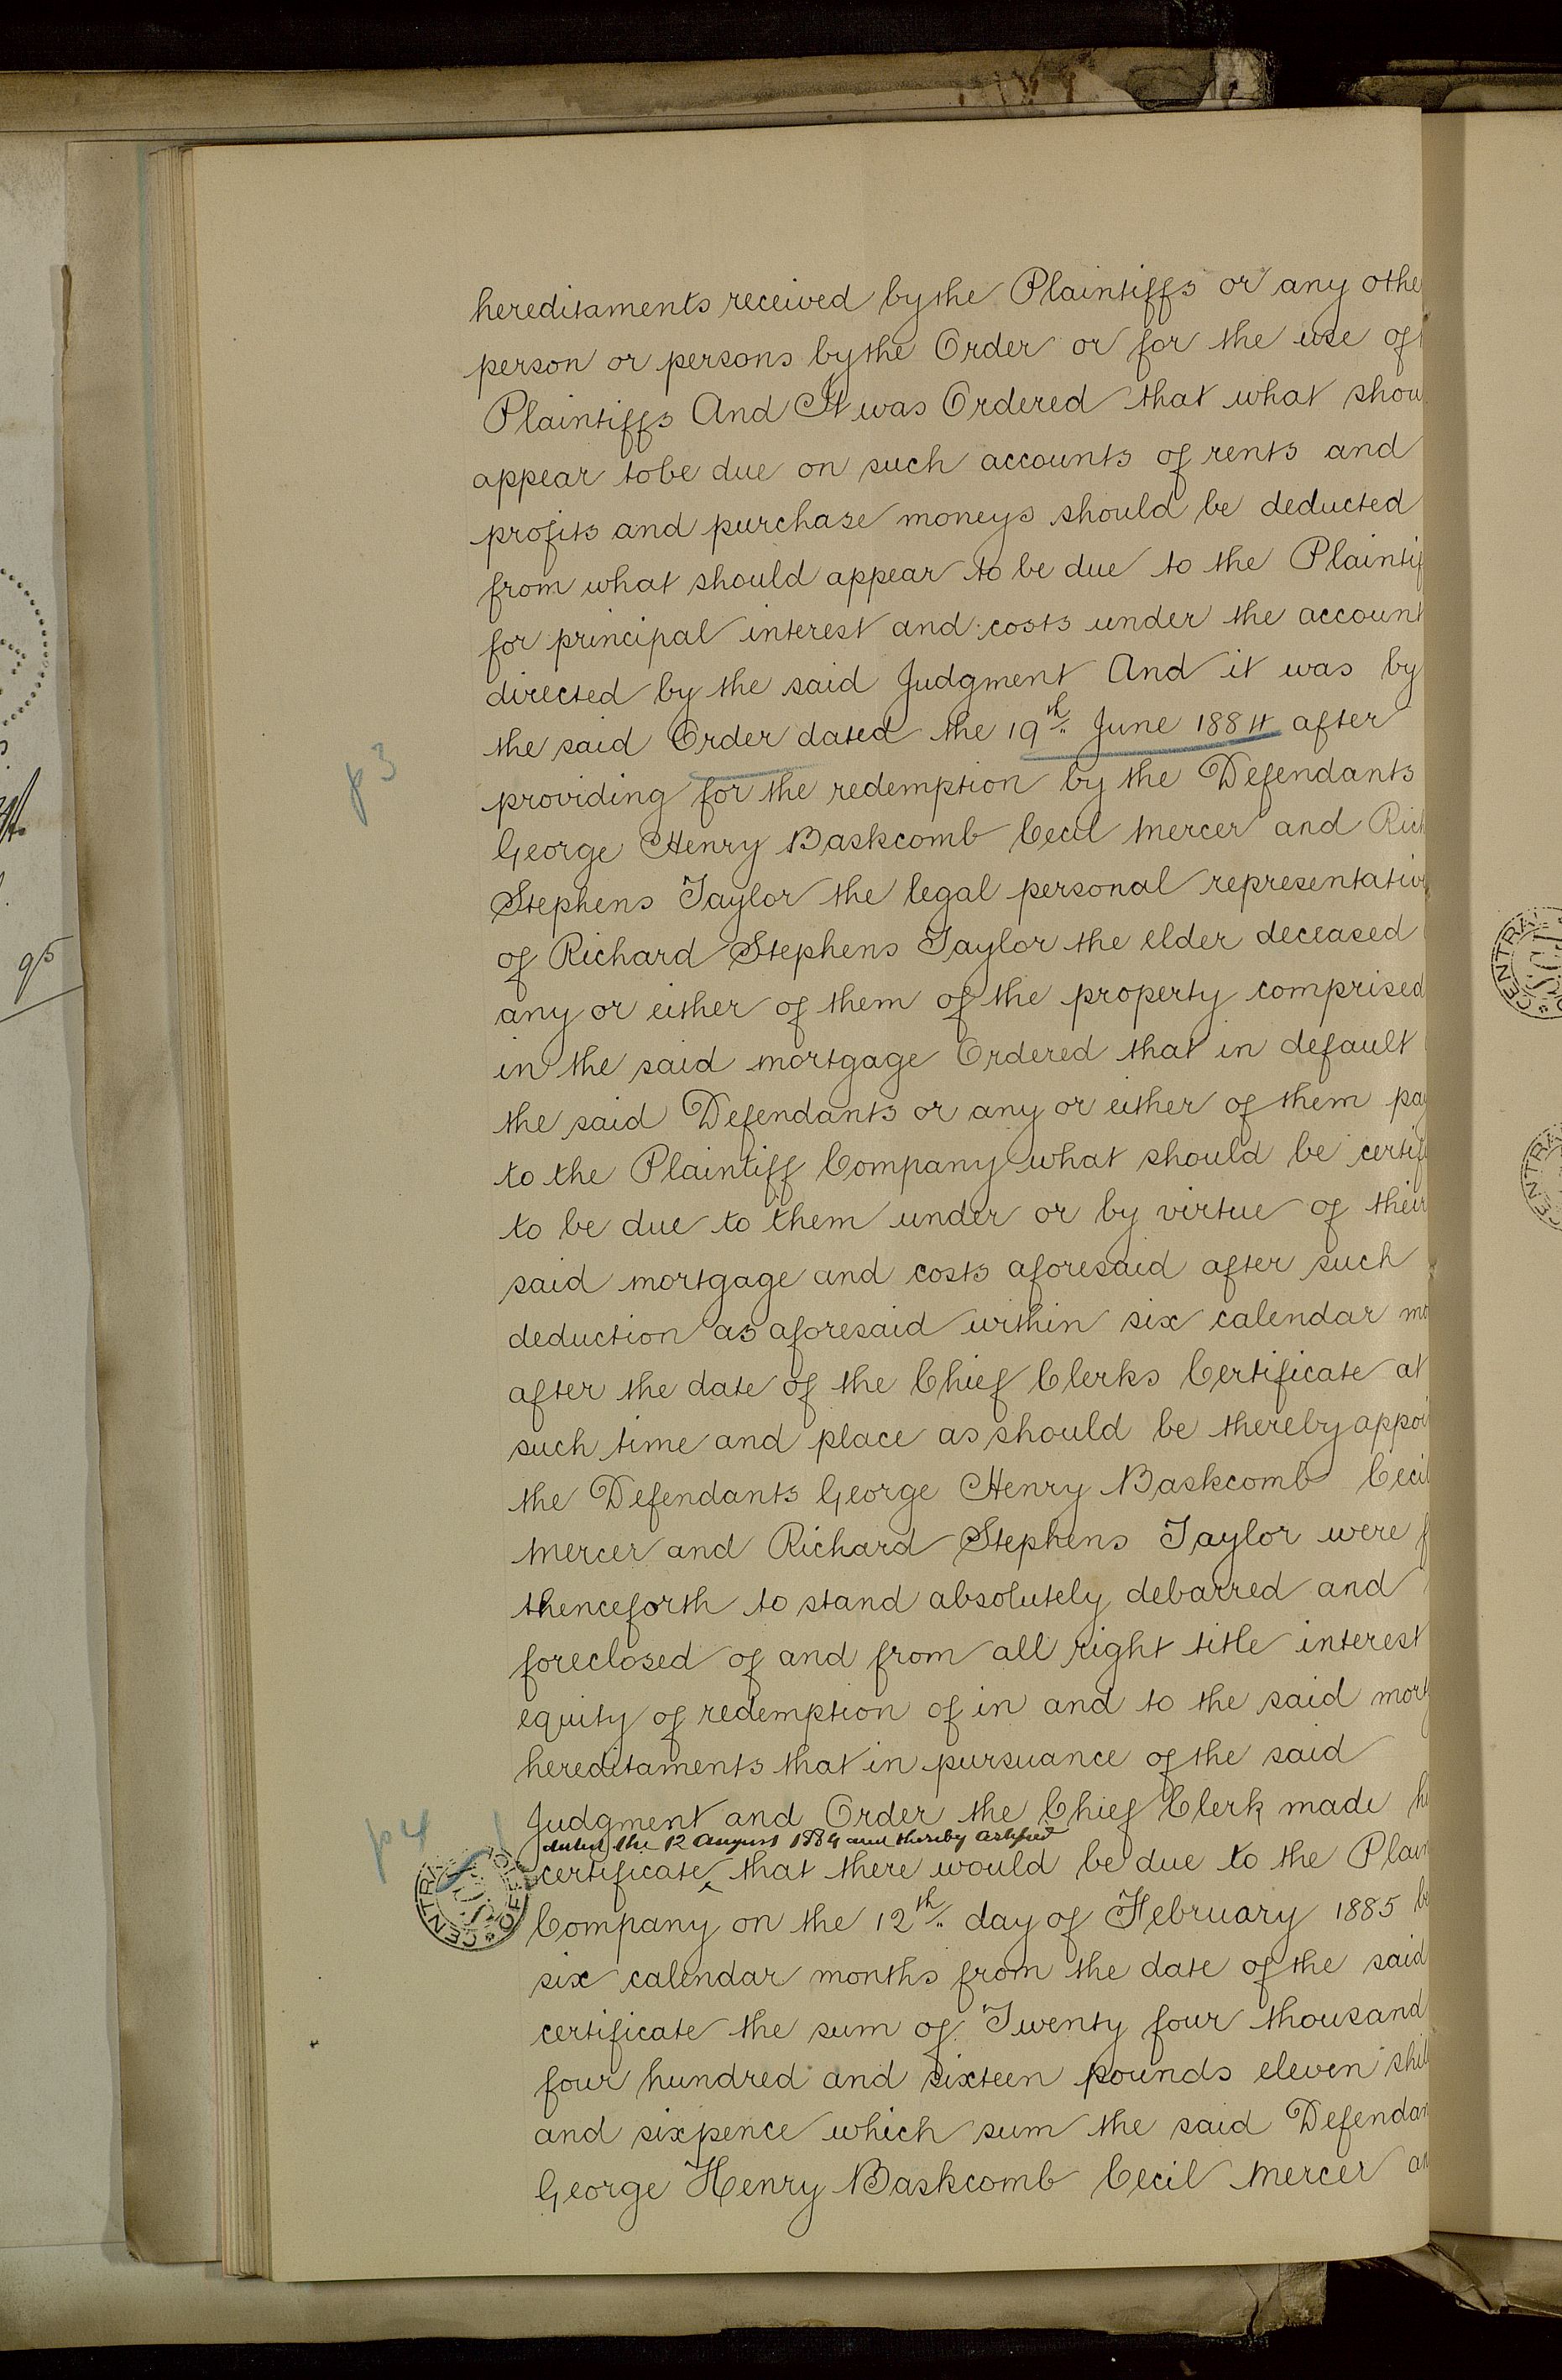 hereditaments received by the Plaintiffs or any othe
person or persons by the Order or for the use of
Plaintiffs And It was Ordered that what shou
appear to be due on such accounts of rents and
profits and purchase moneys should be deducted
from what should appear to be due to the Plaintif
for principal interest and costs under the account
directed by the said Judgment And it was by
the said Order dated the 19th June 1884 after
p3
providing for the redemption by the Defendants
George Henry Baskcomb Cecil Mercer and Rich
Stephens Taylor the legal personal representativ
of Richard Stephens Taylor the elder deceased
any or either of them of the property comprised
in the said mortgage Ordered that in default
the said Defendants or any or either of them pay
to the Plaintiff Company what should be certif
to be due to them under or by virtue of their
said mortgage and costs aforesaid after such
deduction as aforesaid within six calendar mo
after the date of the Chief Clerks Certificate at
such time and place as should be thereby appoi
the Defendants George Henry Baskcomb Cecil
Mercer and Richard Stephens Taylor were f
thenceforth to stand absolutely debarred and
foreclosed of and from all right title interest
equity of redemption of in and to the said mort
hereditaments that in pursuance of the said
Judgment and Order the Chief Clerk made h
p4
dated the 12 August 1884 and thereby certified
certificate that there would be due to the Plain
CENTRAL OFFICE
Company on the 12th day of February 1885 be
six calendar months from the date of the said
certificate the sum of Twenty four thousand
four hundred and sixteen pounds eleven shil
and sixpence which sum the said Defendan
George Henry Baskcomb Cecil Mercer an
95
CENTRA
CENTRA